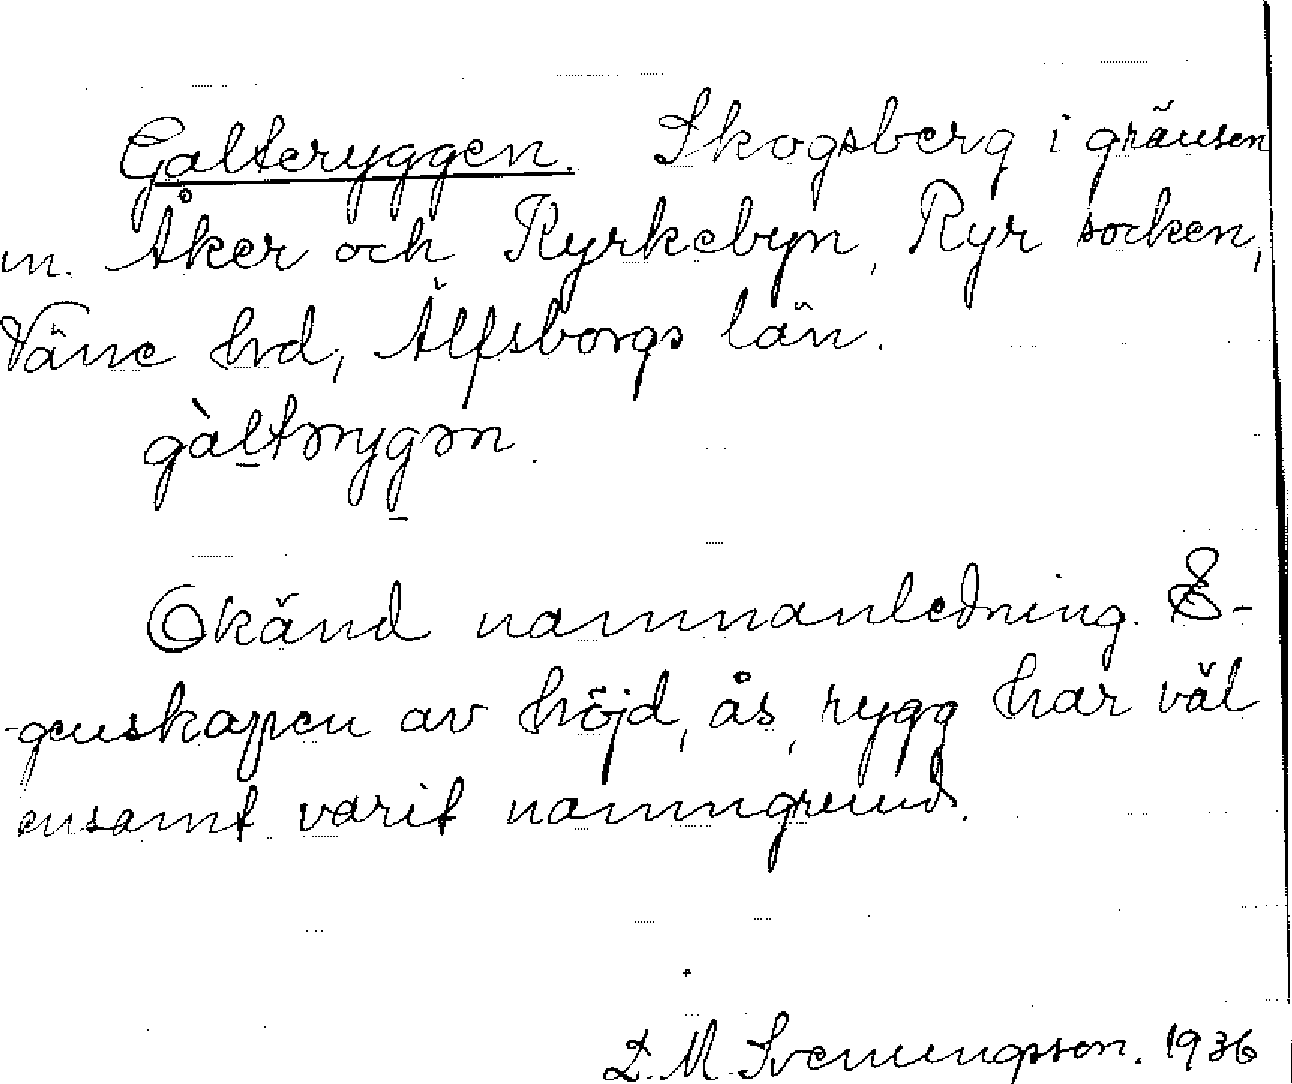 Galteryggen. Skogsberg i gränsen
m. Åker och Kyrkebyn, Ryr socken,
Väne hd, Älfsborgs län.
gàltərygən.
Okänd namnanledning. E-
genskapen av höjd, ås, rygg har väl
ensamt varit namngrund.
L. M. Svenungsson. 1936